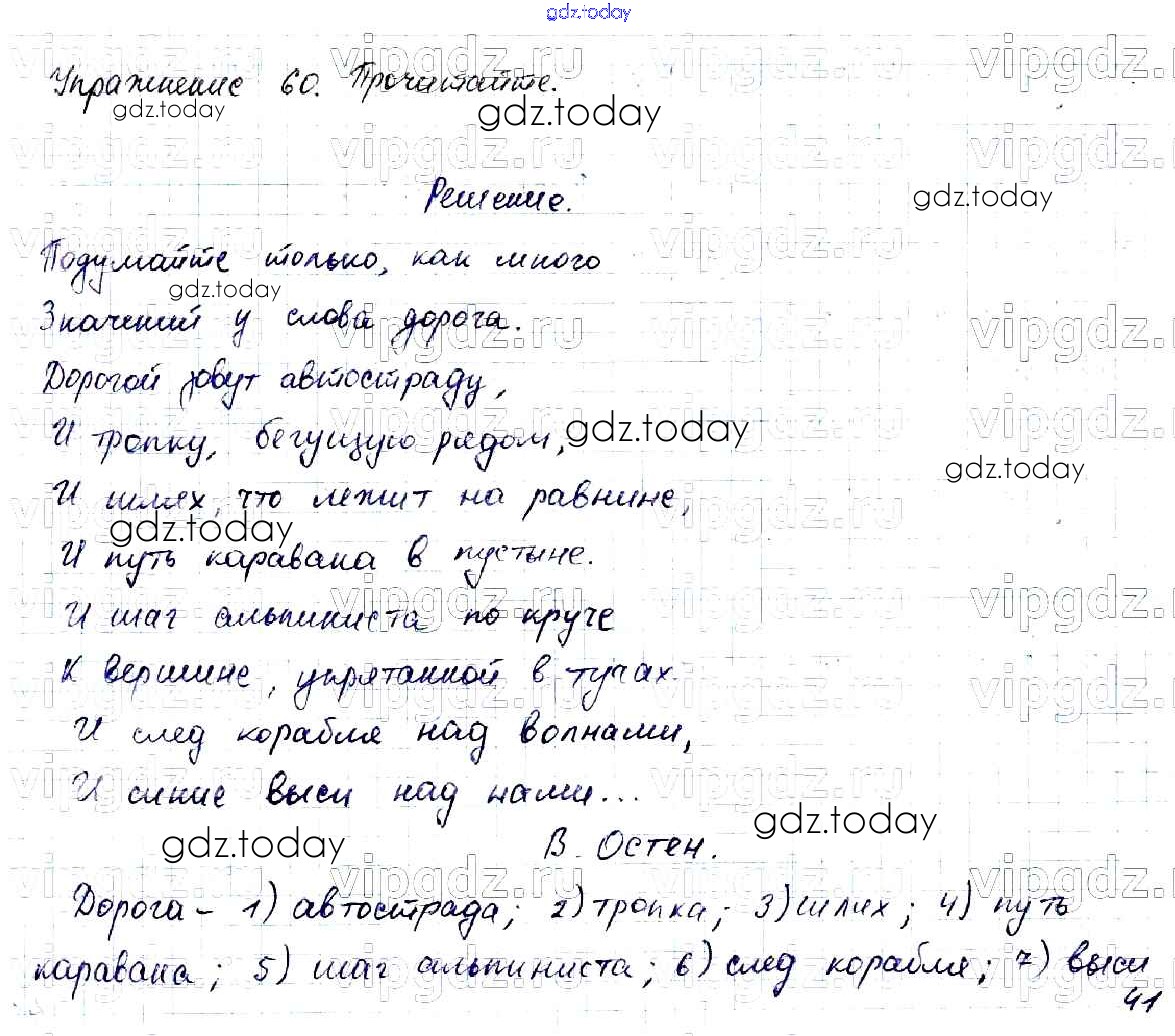 gdz.today
Упражнение 60. Прочитайте.
Решение.
Подумайте только, как много
Значений у слова дорога.
Дорогой зовут автостраду,
И тропку, бегущую рядом,
И шлях, что лежит на равнине,
И путь каравана в пустыне.
И шаг альпиниста по круче
К вершине, упрятанной в тучах.
И след корабля над волнами,
И синие выси над нами...
В. Остен.
Дорога – 1) автострада; 2) тропка; 3) шлях; 4) путь
каравана; 5) шаг альпиниста; 6) след корабля; 7) выси
41